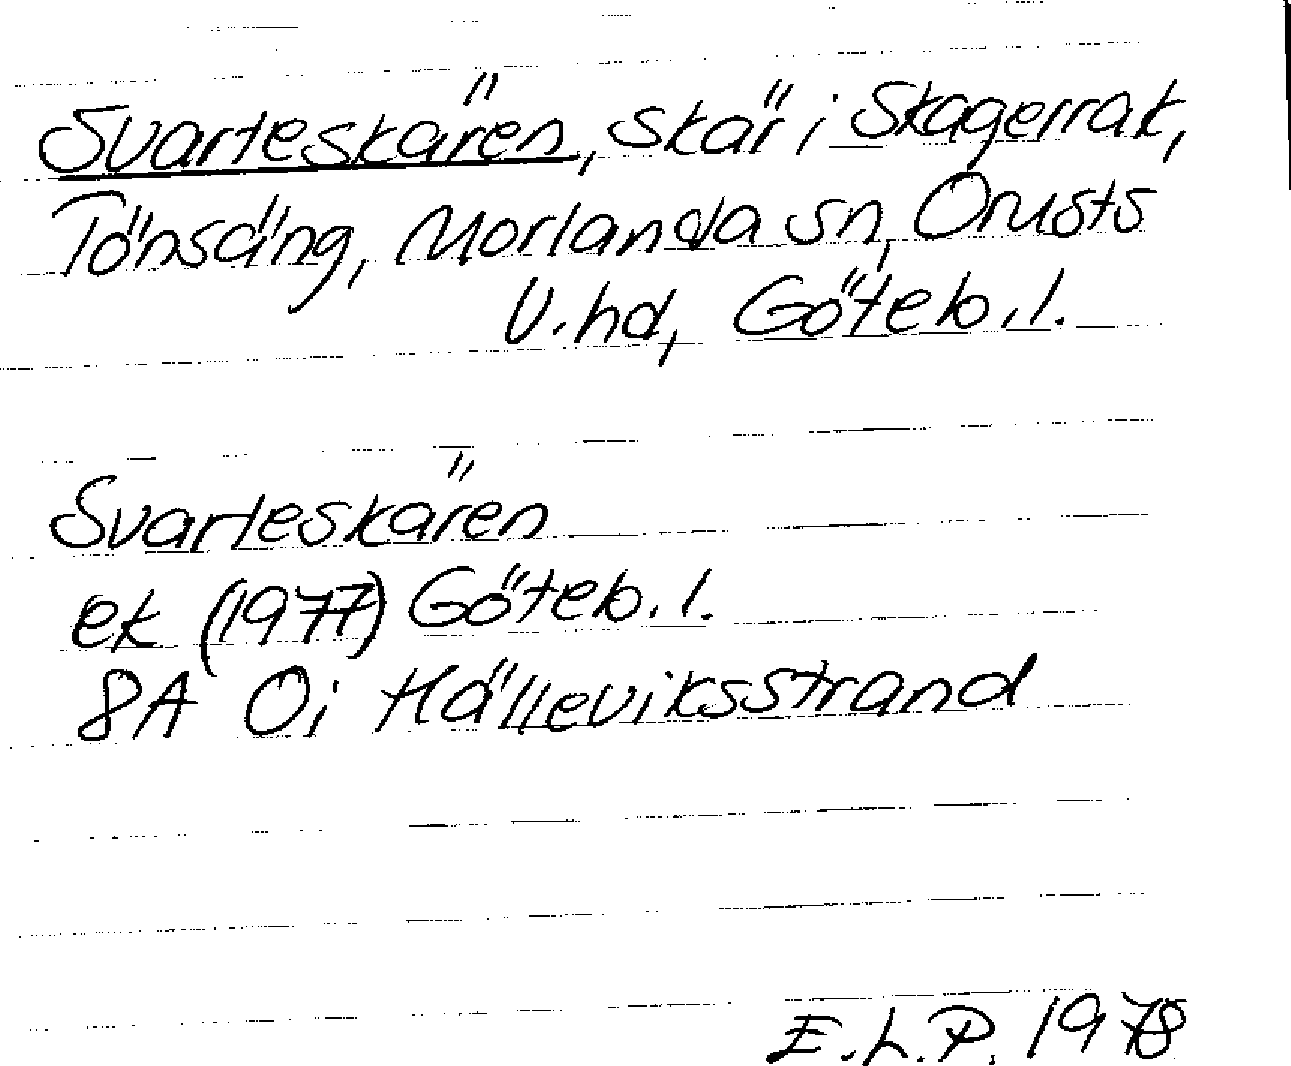 Svarteskären, skär i Skagerrak,
Tönsäng, Morlanda sn, Orusts
V. hd, Göteb. l.
Svarteskären
ek (1977) Göteb. l.
8A 0i Hälleviksstrand
E.L.P. 1978